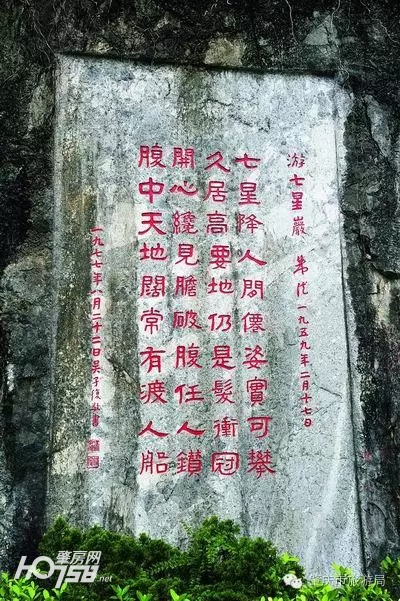 游七星巖 朱德 一九五九年二月十七日
七星降人間僊姿實可攀
久居高要地仍是髮衝冠
開心纔見膽破腹任人鑽
腹中天地闊常有渡人船
一九七七年八月二十二日吴子復敬書
肇房网
HO758.net
肇庆市旅游局